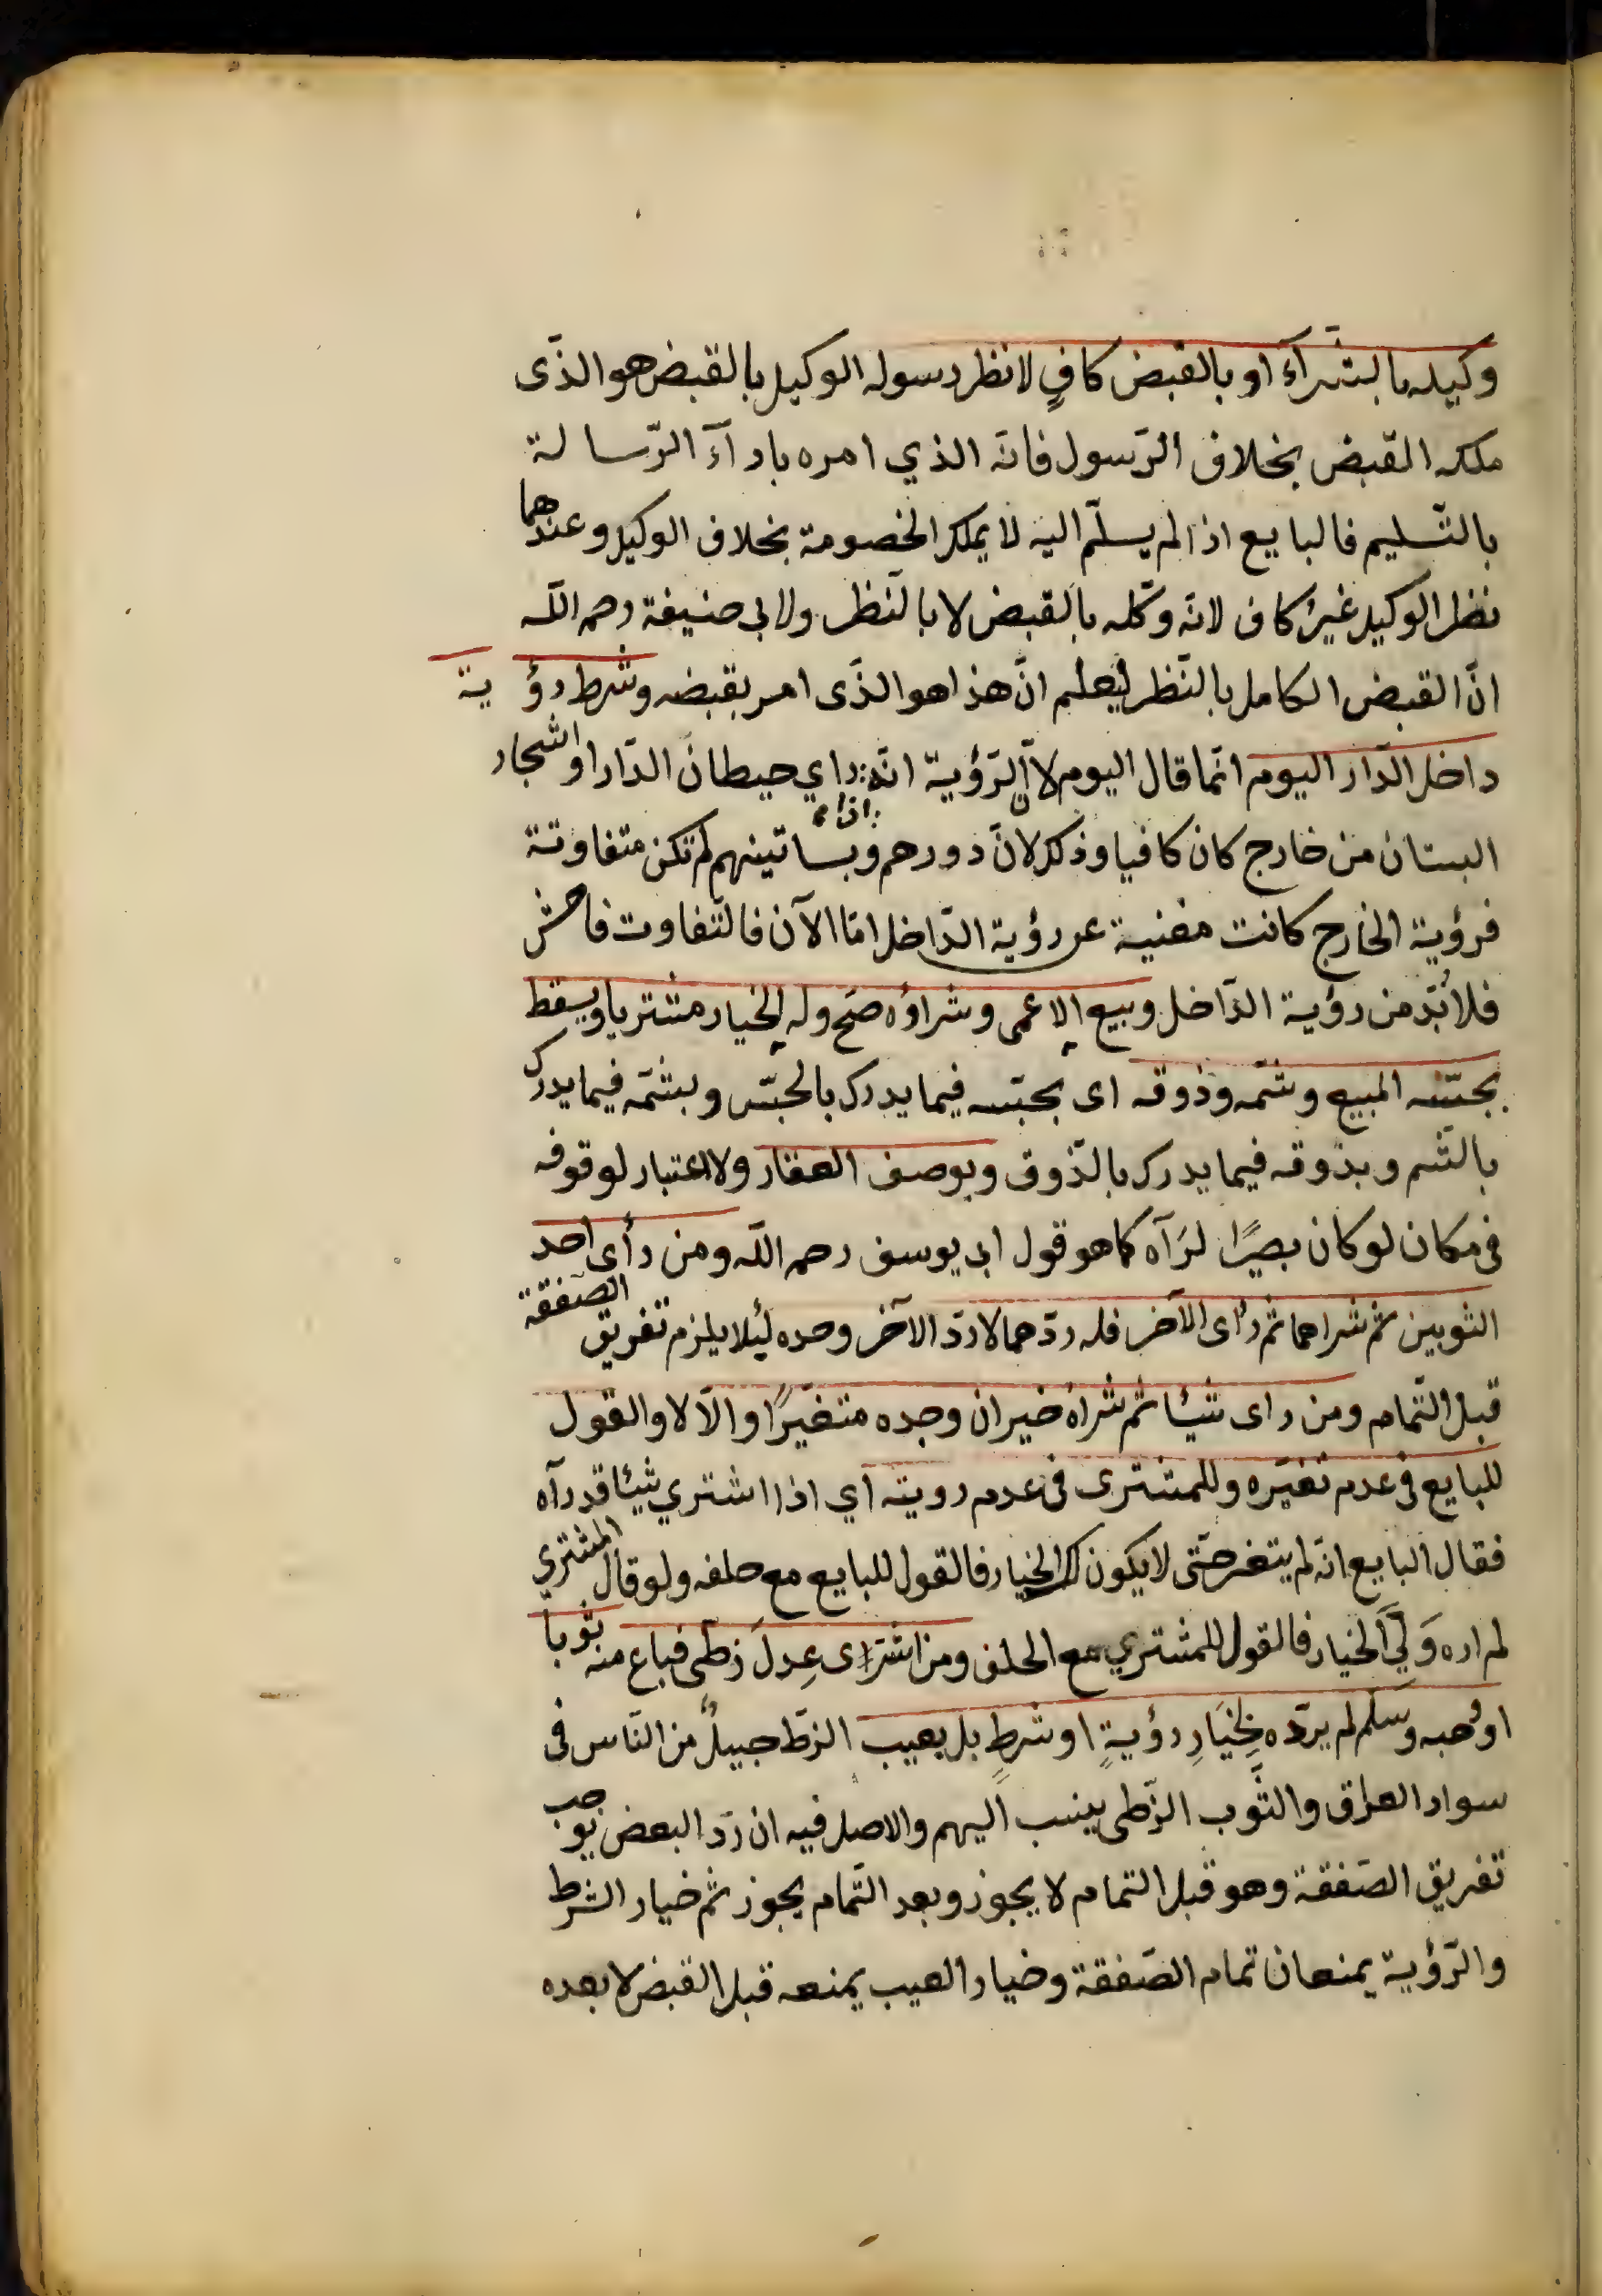 وكيله بالشرآء او بالقبض كافٍ لا نظر رسوله الوكيل بالقبض هو الذّى
ملكه القبض بخلاف الرّسول فانّه الذي امره باد آءَ الرّسا لة
بالتّسليم فالبايع اذا لم يسلّم اليه لا يملك الخصومة بخلاف الوكيل وعندهما
نظر الوكيل غيرُ كاف لانّه وكّله بالقبض لا بالنّظر ولابى حنيفة رحمه اللّه
انّ القبض الكامل بالنّظر ليعلم انّ هذا هو الذّى امر بقبضه وشرط رؤ ية
داخل الدّار اليوم انّما قال اليوم لانّ الرّؤية انّه راي حيطانَ الدّار او اشجار
اذا
البستان من خارج كان كافيا وذلك لانّ دورهم وبساتينهم لم تكن متفاوتة
فرؤية الخارج كانت مغنية عن رؤية الدّاخل امّا الآن فالتّفاوت فاحش
فلا بُدّ من رؤية الدّاخل وبيع الاعمى وشراؤه صَحّ وله الخيار مشتريا ويسقط
بجسّه المبيع وشمّه وذوقه اى بجسّه فيما يدرك بالجسّ وبشمّه فيما يدرك
بالشّم وبذوقه فيما يدرك بالذّوق وبوصف العقار ولا اعتبار لوقوفه
فى مكان لو كان بصيرًا لرَآه كما هو قول ابى يوسف رحمه اللّه ومن رأى احد
الثوبين ثم شراهما ثم رأى الآخر فله ردّهما لا ردّ الآخر وحده لئلا يلزم تفريق الصّفقة
قبل التّمام ومن راى شيئا ثم شراه خير ان وجده متغيّرًا والّا لا والقول
للبايع فى عدم تغيّره وللمشترى فى عدم رويته اي اذا اشتري شيئا قد رآه
فقال البايع انّه لم يتغير حتّى لا يكون لك الخيار فالقول للبايع مع حلفه ولو قال المشتري
لم اره وَلِىَ الخيار فالقول للمشتري مع الحلف ومن اشترى عِدلَ زطّى فباع منه ثوبا
او وهبه وسلّم لم يردّه بخِيَارِ رؤيةٍ او شرطٍ بل بعيب الزطّ جيلٌ من النّاس فى
سواد العراق والثّوب الزّطى ينسب اليهم والاصل فيه ان ردّ البعض يوجب
تفريق الصّفقة وهو قبل التمام لا يجوز وبعد التّمام يجوز ثم خيار الشرط
والرّؤية يمنعان تمام الصّفقة وخيار العيب يمنعه قبل القبض لا بعده